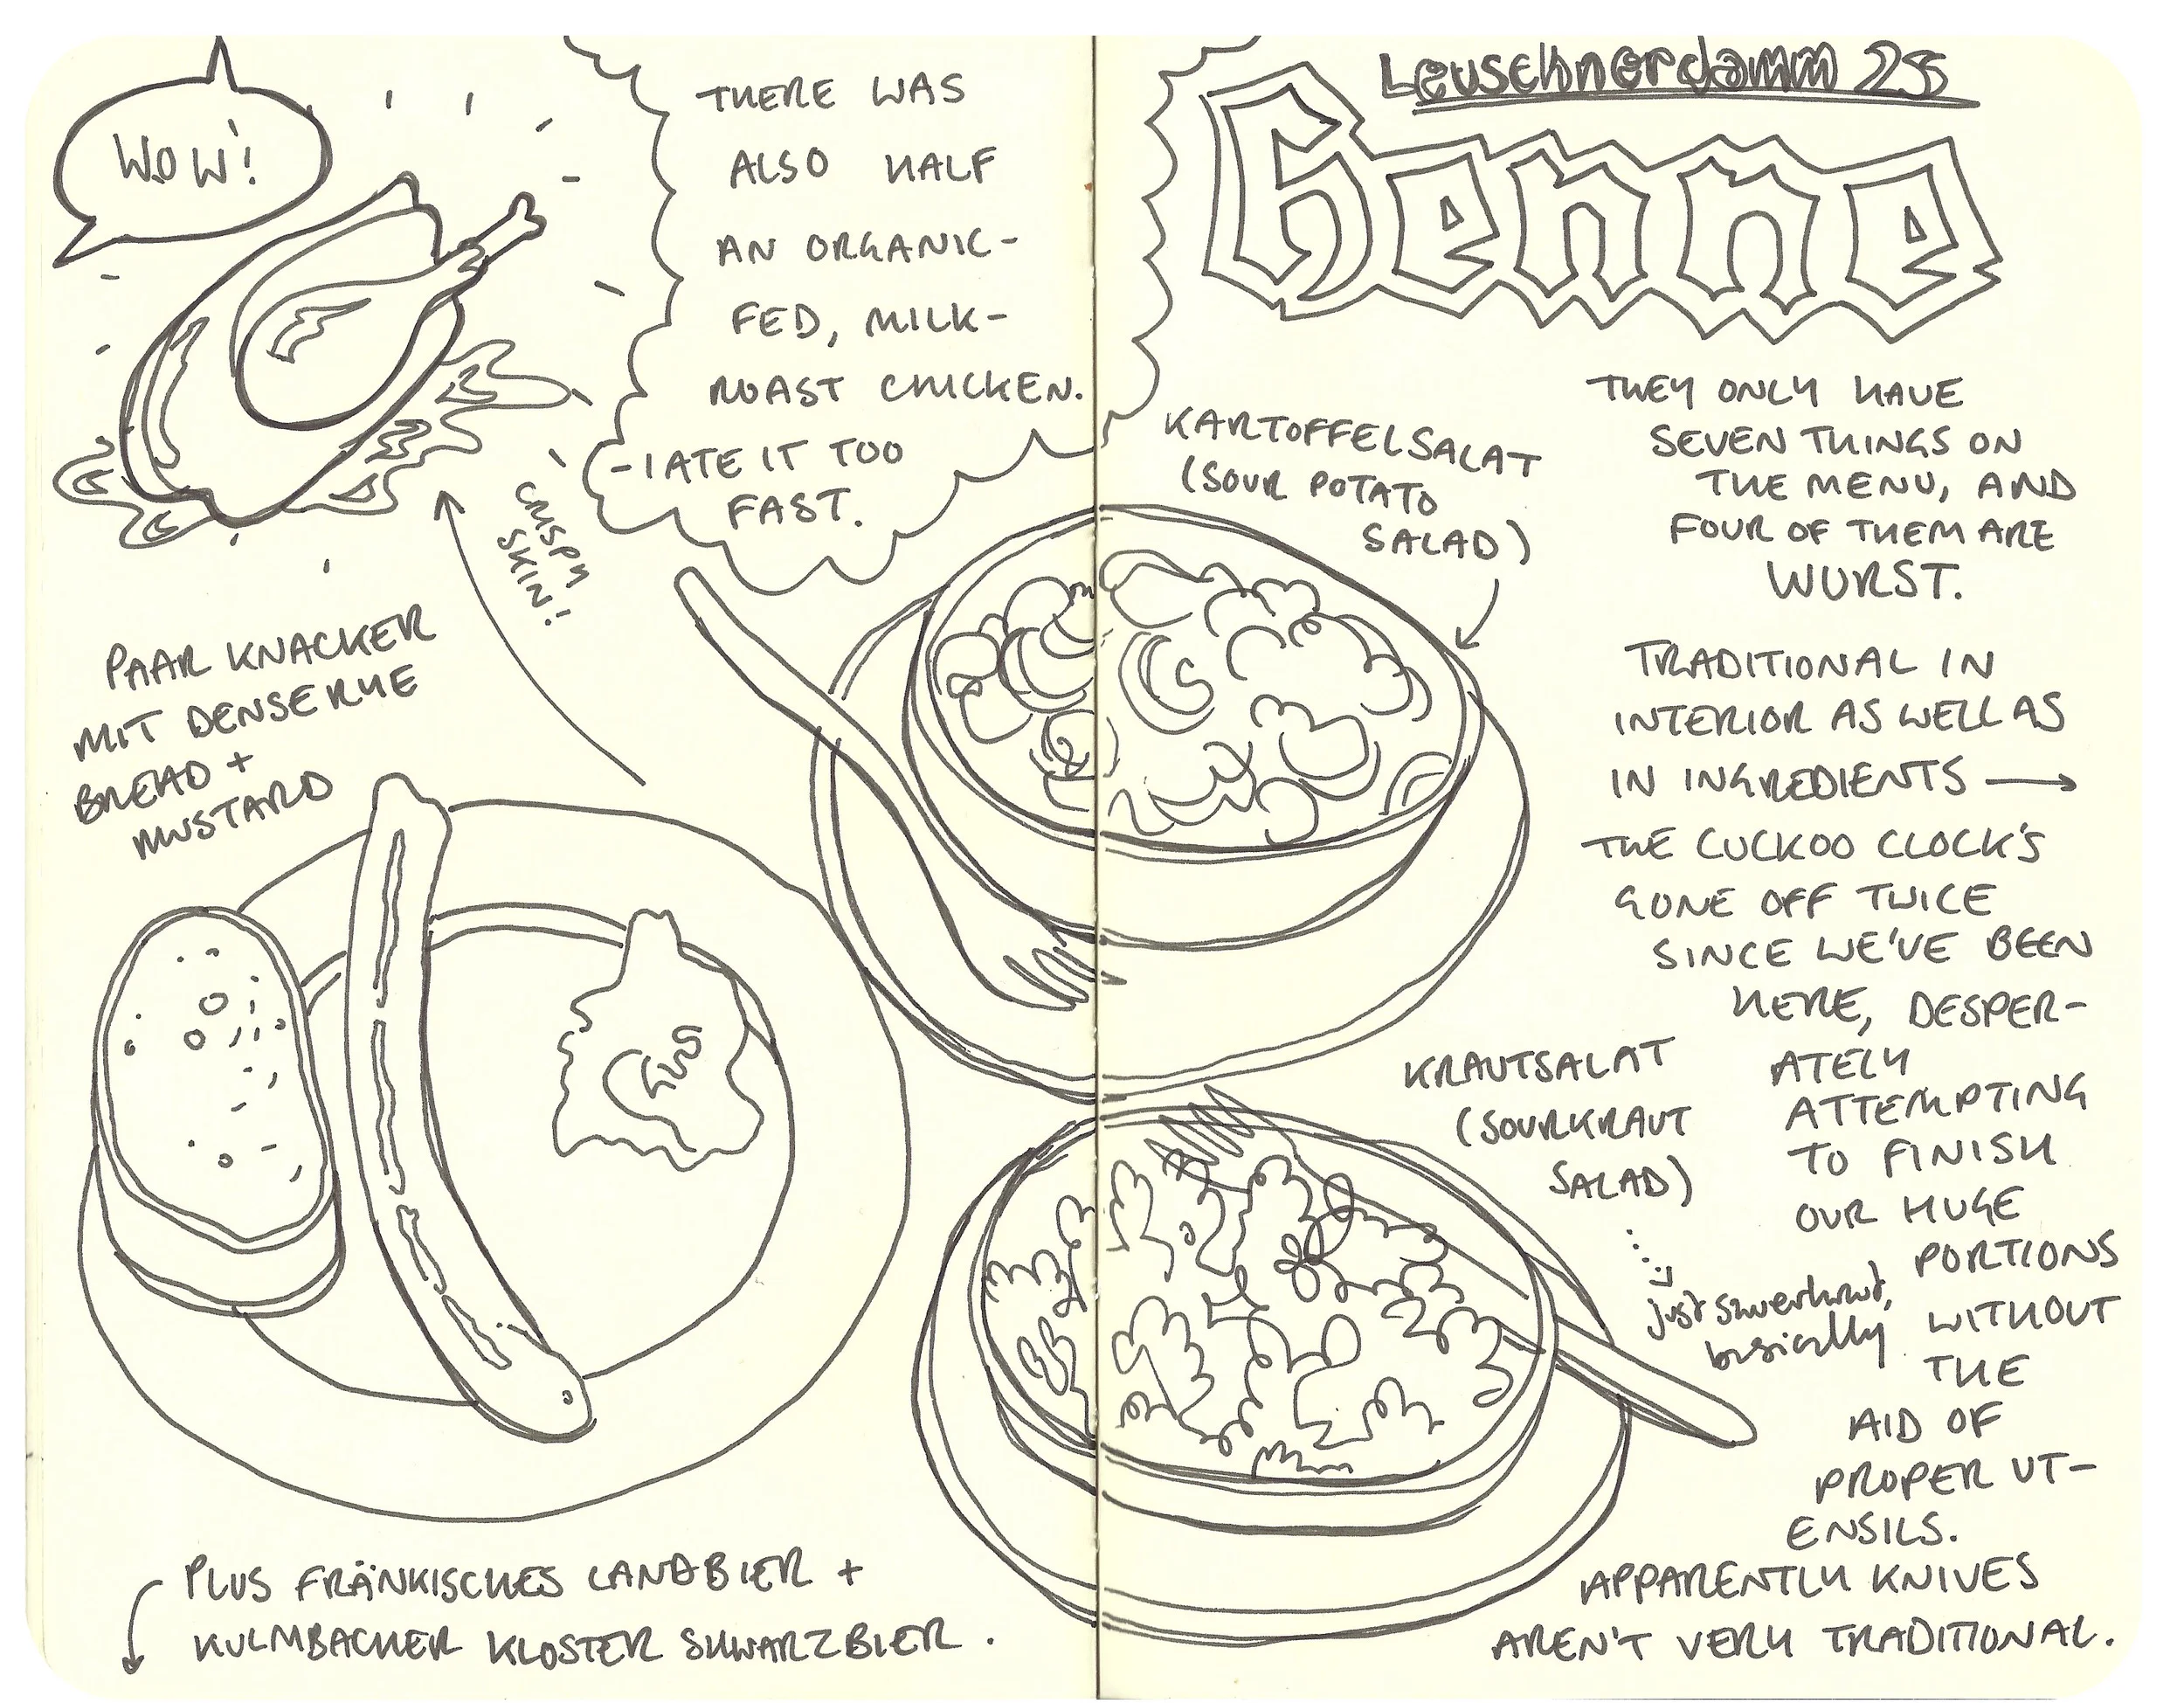 WOW!
THERE WAS
ALSO HALF
AN ORGANIC-
FED, MILK-
ROAST CHICKEN.
-I ATE IT TOO
FAST.
CRISPY
SKIN!
PAAR KNACKER
MIT DENSE RYE
BREAD +
MUSTARD
PLUS FRÄNKISCHES LANDBIER +
KULMBACHER KLOSTER SHWARZBIER.
Leuschnerdamm 25
Henne
THEY ONLY HAVE
SEVEN THINGS ON
THE MENU, AND
FOUR OF THEM ARE
WURST.
KARTOFFELSALAT
(SOUR POTATO
SALAD)
TRADITIONAL IN
INTERIOR AS WELL AS
IN INGREDIENTS →
THE CUCKOO CLOCK'S
GONE OFF TWICE
SINCE WE'VE BEEN
HERE, DESPER-
ATELY
ATTEMPTING
TO FINISH
OUR HUGE
PORTIONS
WITHOUT
THE
AID OF
PROPER UT-
ENSILS.
APPARENTLY KNIVES
AREN'T VERY TRADITIONAL.
KRAUTSALAT
(SOURKRAUT
SALAD)
just sauerkraut,
basically